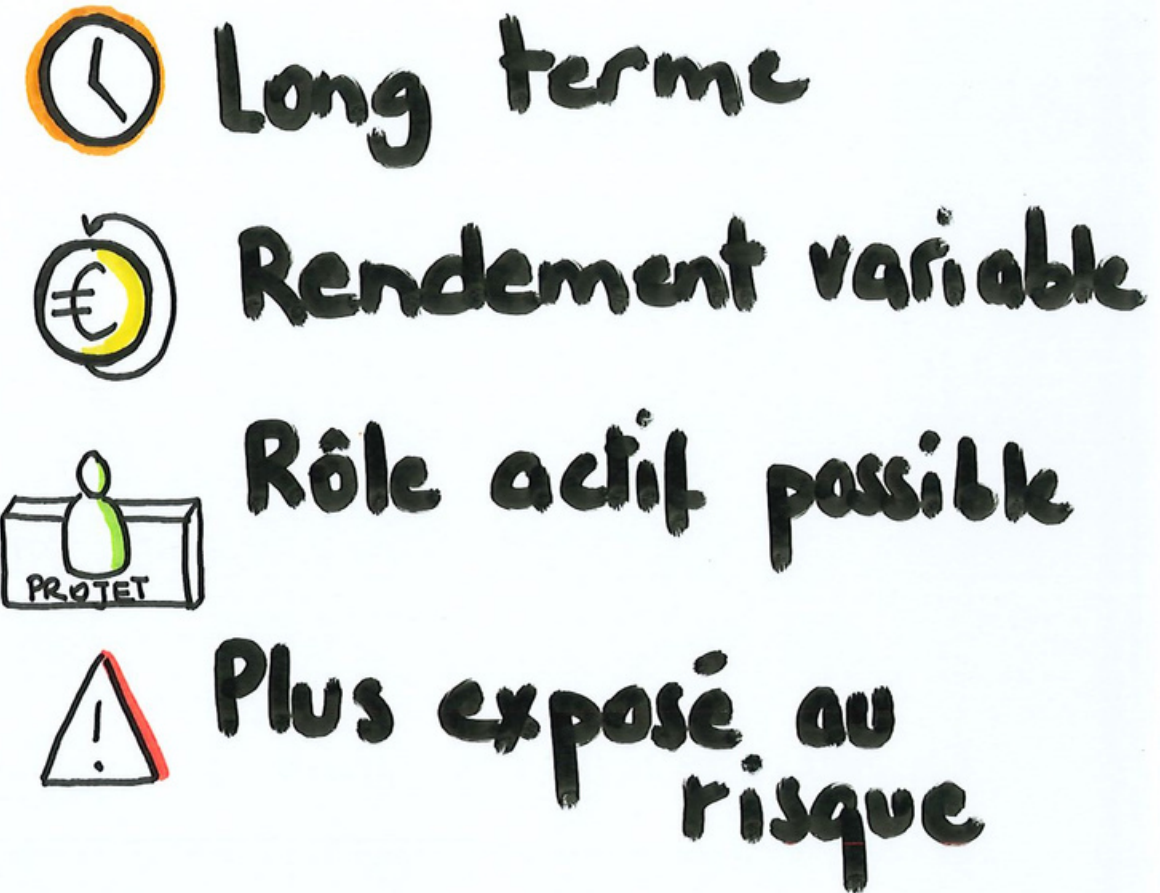 Long terme
Rendement variable
Rôle actif possible
PROJET
Plus exposé au
risque